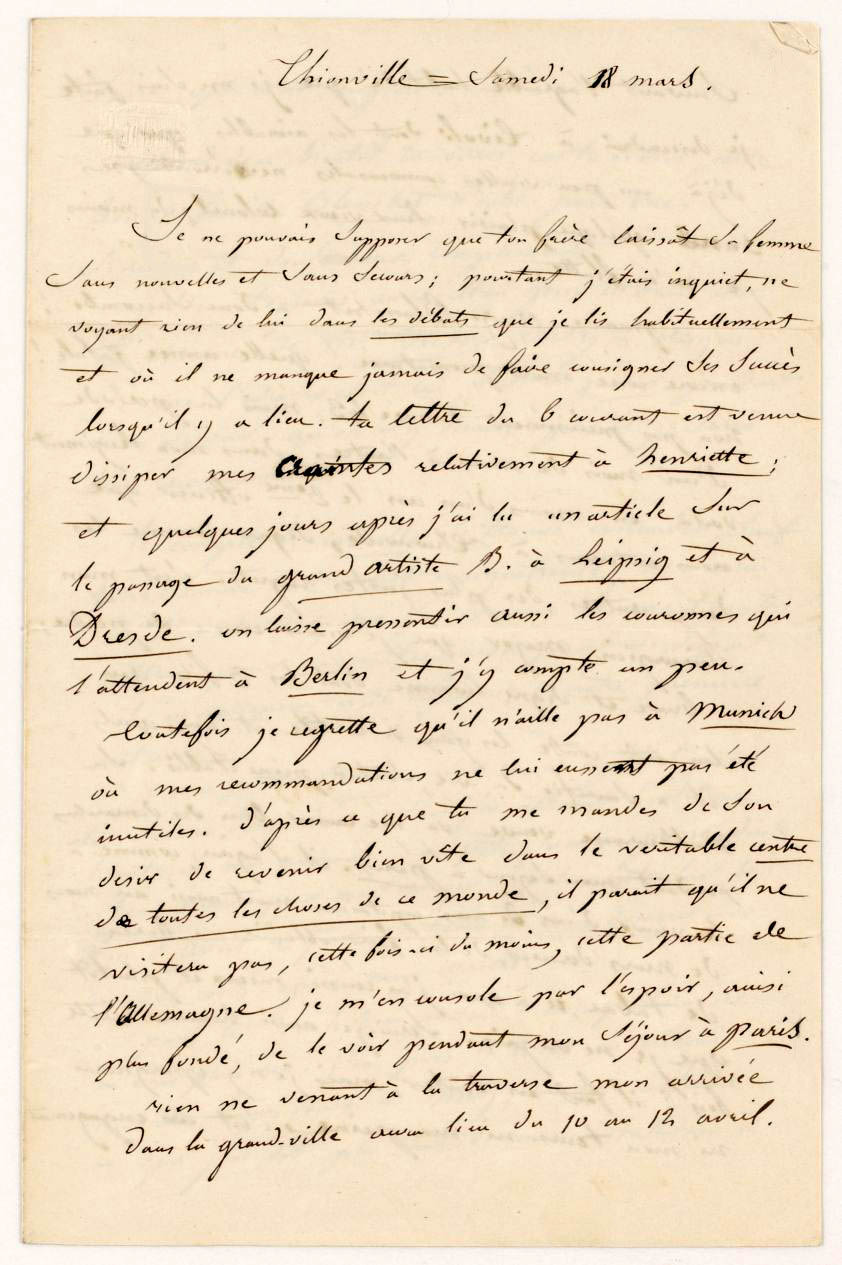 Thionville = Samedi 18 mars.
Je ne pouvais supposer que ton frère laissât sa femme
sans nouvelles et sans secours; pourtant j'étais inquiet, ne
voyant rien de lui dans les débats que je lis habituellement
et où il ne manque jamais de faire consigner ses succès
lorsqu'il y a lieu. ta lettre du 6 courant est venue
dissiper mes craintes relativement à henriette;
et quelques jours après j'ai lu un article sur
le passage du grand artiste B. à Leipsig et à
Dresde. on laisse pressentir aussi les couronnes qui
l'attendent à Berlin et j'y compte un peu.
toutefois je regrette qu'il n'aille pas à Munich
où mes recommandations ne lui eussent pas été
inutiles. d'après ce que tu me mandes de son
desir de revenir bien vîte dans le veritable centre
de toutes les choses de ce monde, il parait qu'il ne
visitera pas, cette fois-ci du moins, cette partie de
l'Allemagne. je m'en console par l'espoir, aussi
plus fondé, de le voir pendant mon séjour à paris.
rien ne venant à la traverse mon arrivée
dans la grand-ville aura lieu du 10 au 12 avril.